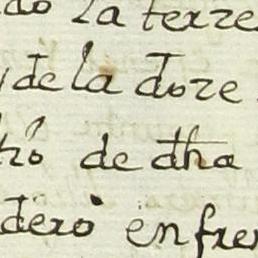 do la terre
de la dore
tro de dha
dero enfren